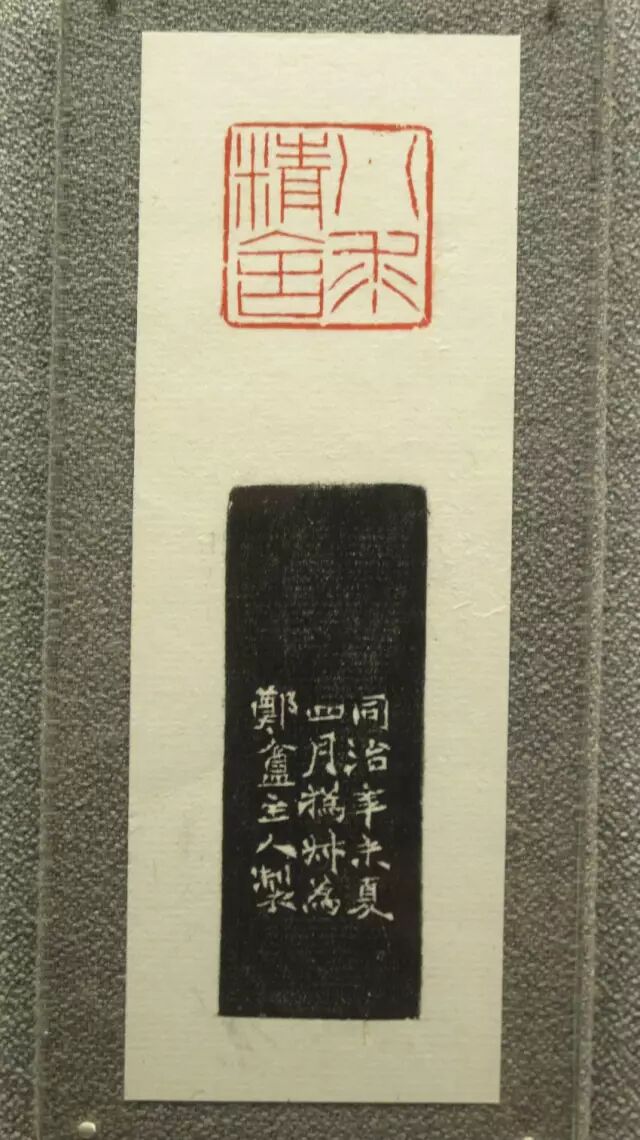 八求
精舍
同治辛未夏
四月撝叔為
鄭盦主人製